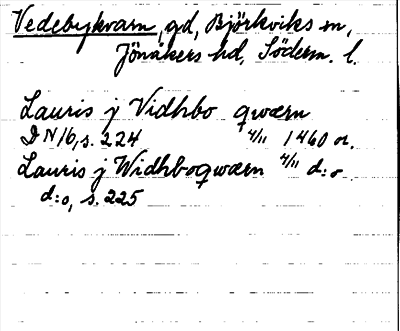 Vedebykvarn, gd, Björkviks sn,
Jönåkers hd, Söderm. l.
Lauris j Vidhbo qwærn
D N 16, s. 224 4/11 1460 or.
Lauris j Widhboqwærn 4/11 d:o
d:o, s. 225